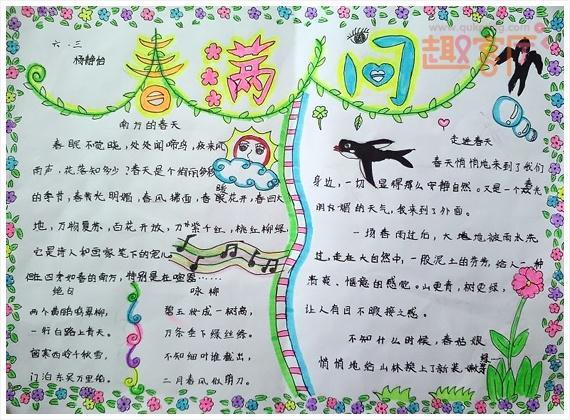 六.三
春满人间
南方的春天
春眠不觉晓，处处闻啼鸟，夜来风
雨声，花落知多少？春天是个绚丽多
的季节，春光明媚，春风拂面，春暖花开，春回大
地，万物复苏，百花开放，万紫千红，桃红柳绿，
它是诗人和画家笔下的宠儿
四季如春的南方，特别是在
绝句
两个黄鹂鸣翠柳，
一行白路上青天。
窗含西岭千秋雪，
门泊东吴万里船。
咏柳
碧玉妆成一树高，
万条垂下绿丝绦。
不知细叶谁裁出，
二月春风似剪刀。
走进春天
春天悄悄地来到了我们
身边，一切显得那么安静自然。又是一个
明媚的天气，我来到了外面。
一场春雨过后，大地被雨水洗
过，走在大自然中，一股泥土的芬芳，给人一种
清爽、惬意的感觉。山更青，树更绿，
让人有目不暇接之感。
不知什么时候，春姑娘
悄悄地给山林换上了新装，嫩绿